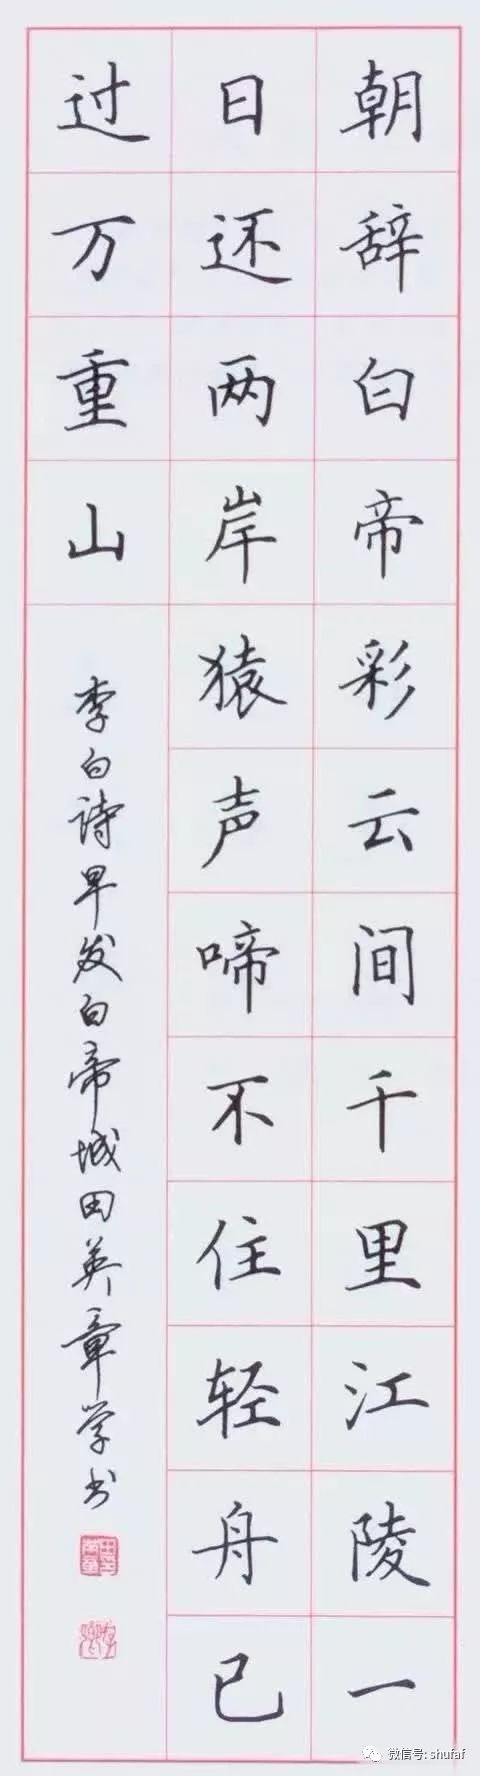 朝辞白帝彩云间千里江陵一
日还两岸猿声啼不住轻舟已
过万重山
李白诗早发白帝城田英章学书
微信号: shufaf